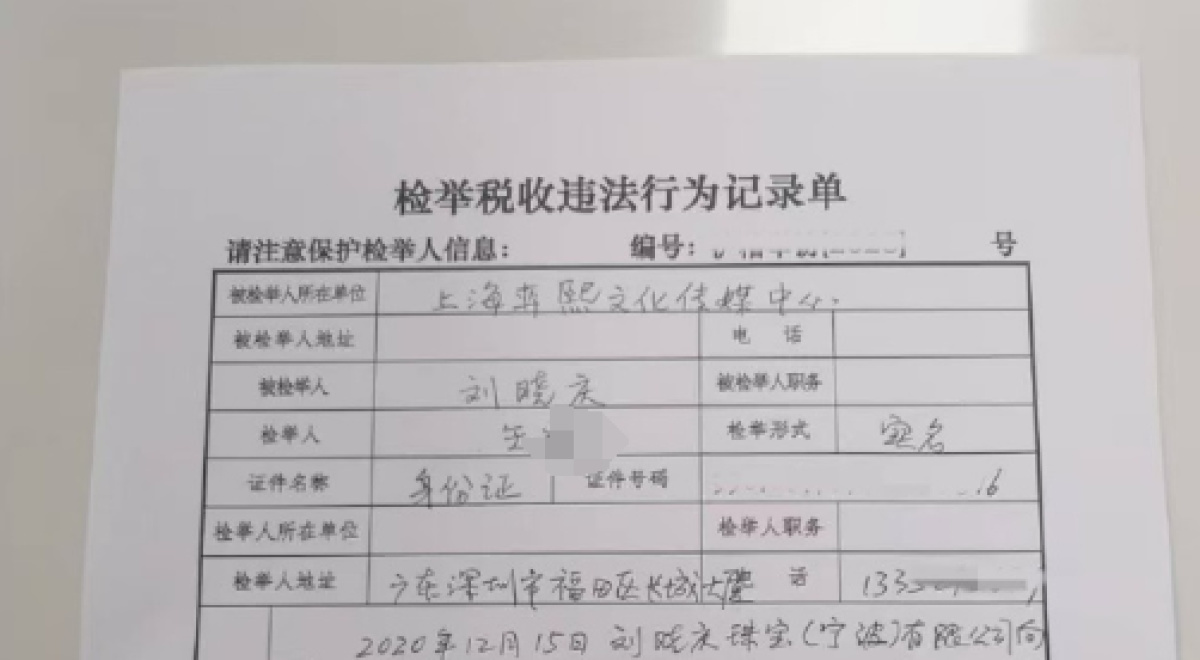 检举税收违法行为记录单
请注意保护检举人信息： 编号： 号
被检举人所在单位 上海弈熙文化传媒中心
被检举人地址 电 话
被检举人 刘晓庆 被检举人职务
检举人 检举形式 实名
证件名称 身份证 证件号码 16
检举人所在单位 检举人职务
检举人地址 广东深圳市福田区长城大厦 话 133
2020年12月15日刘晓庆珠宝(宁波)有限公司向